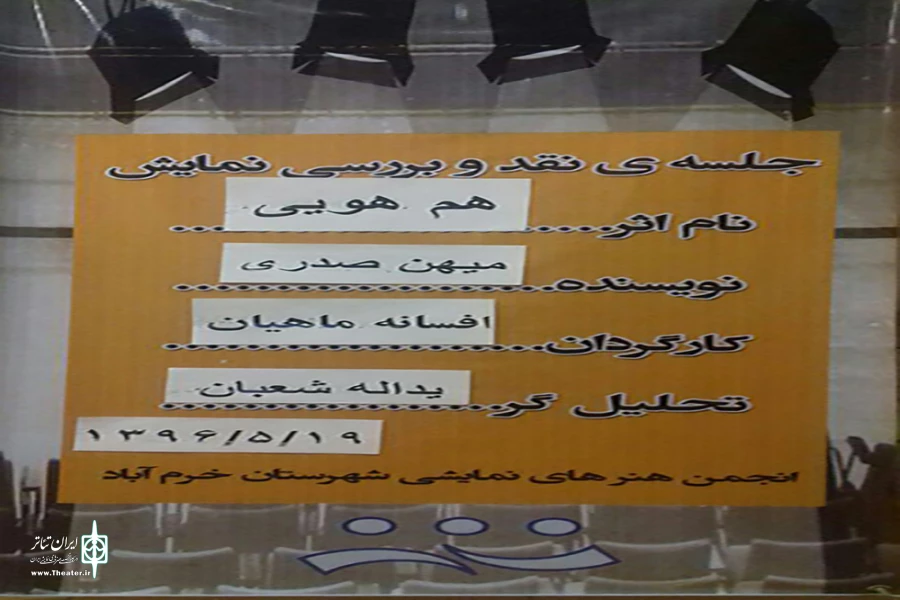 جلسه ی نقد و بررسی نمایش
نام اثر........ هم هویی
نویسنده........ میهن صدری
کارگردان........ افسانه ماهیان
تحلیل گر........ یداله شعبان
۱۳۹۶/۵/۱۹
انجمن هنرهای نمایشی شهرستان خرم آباد
ایران تئاتر
www.Theater.ir